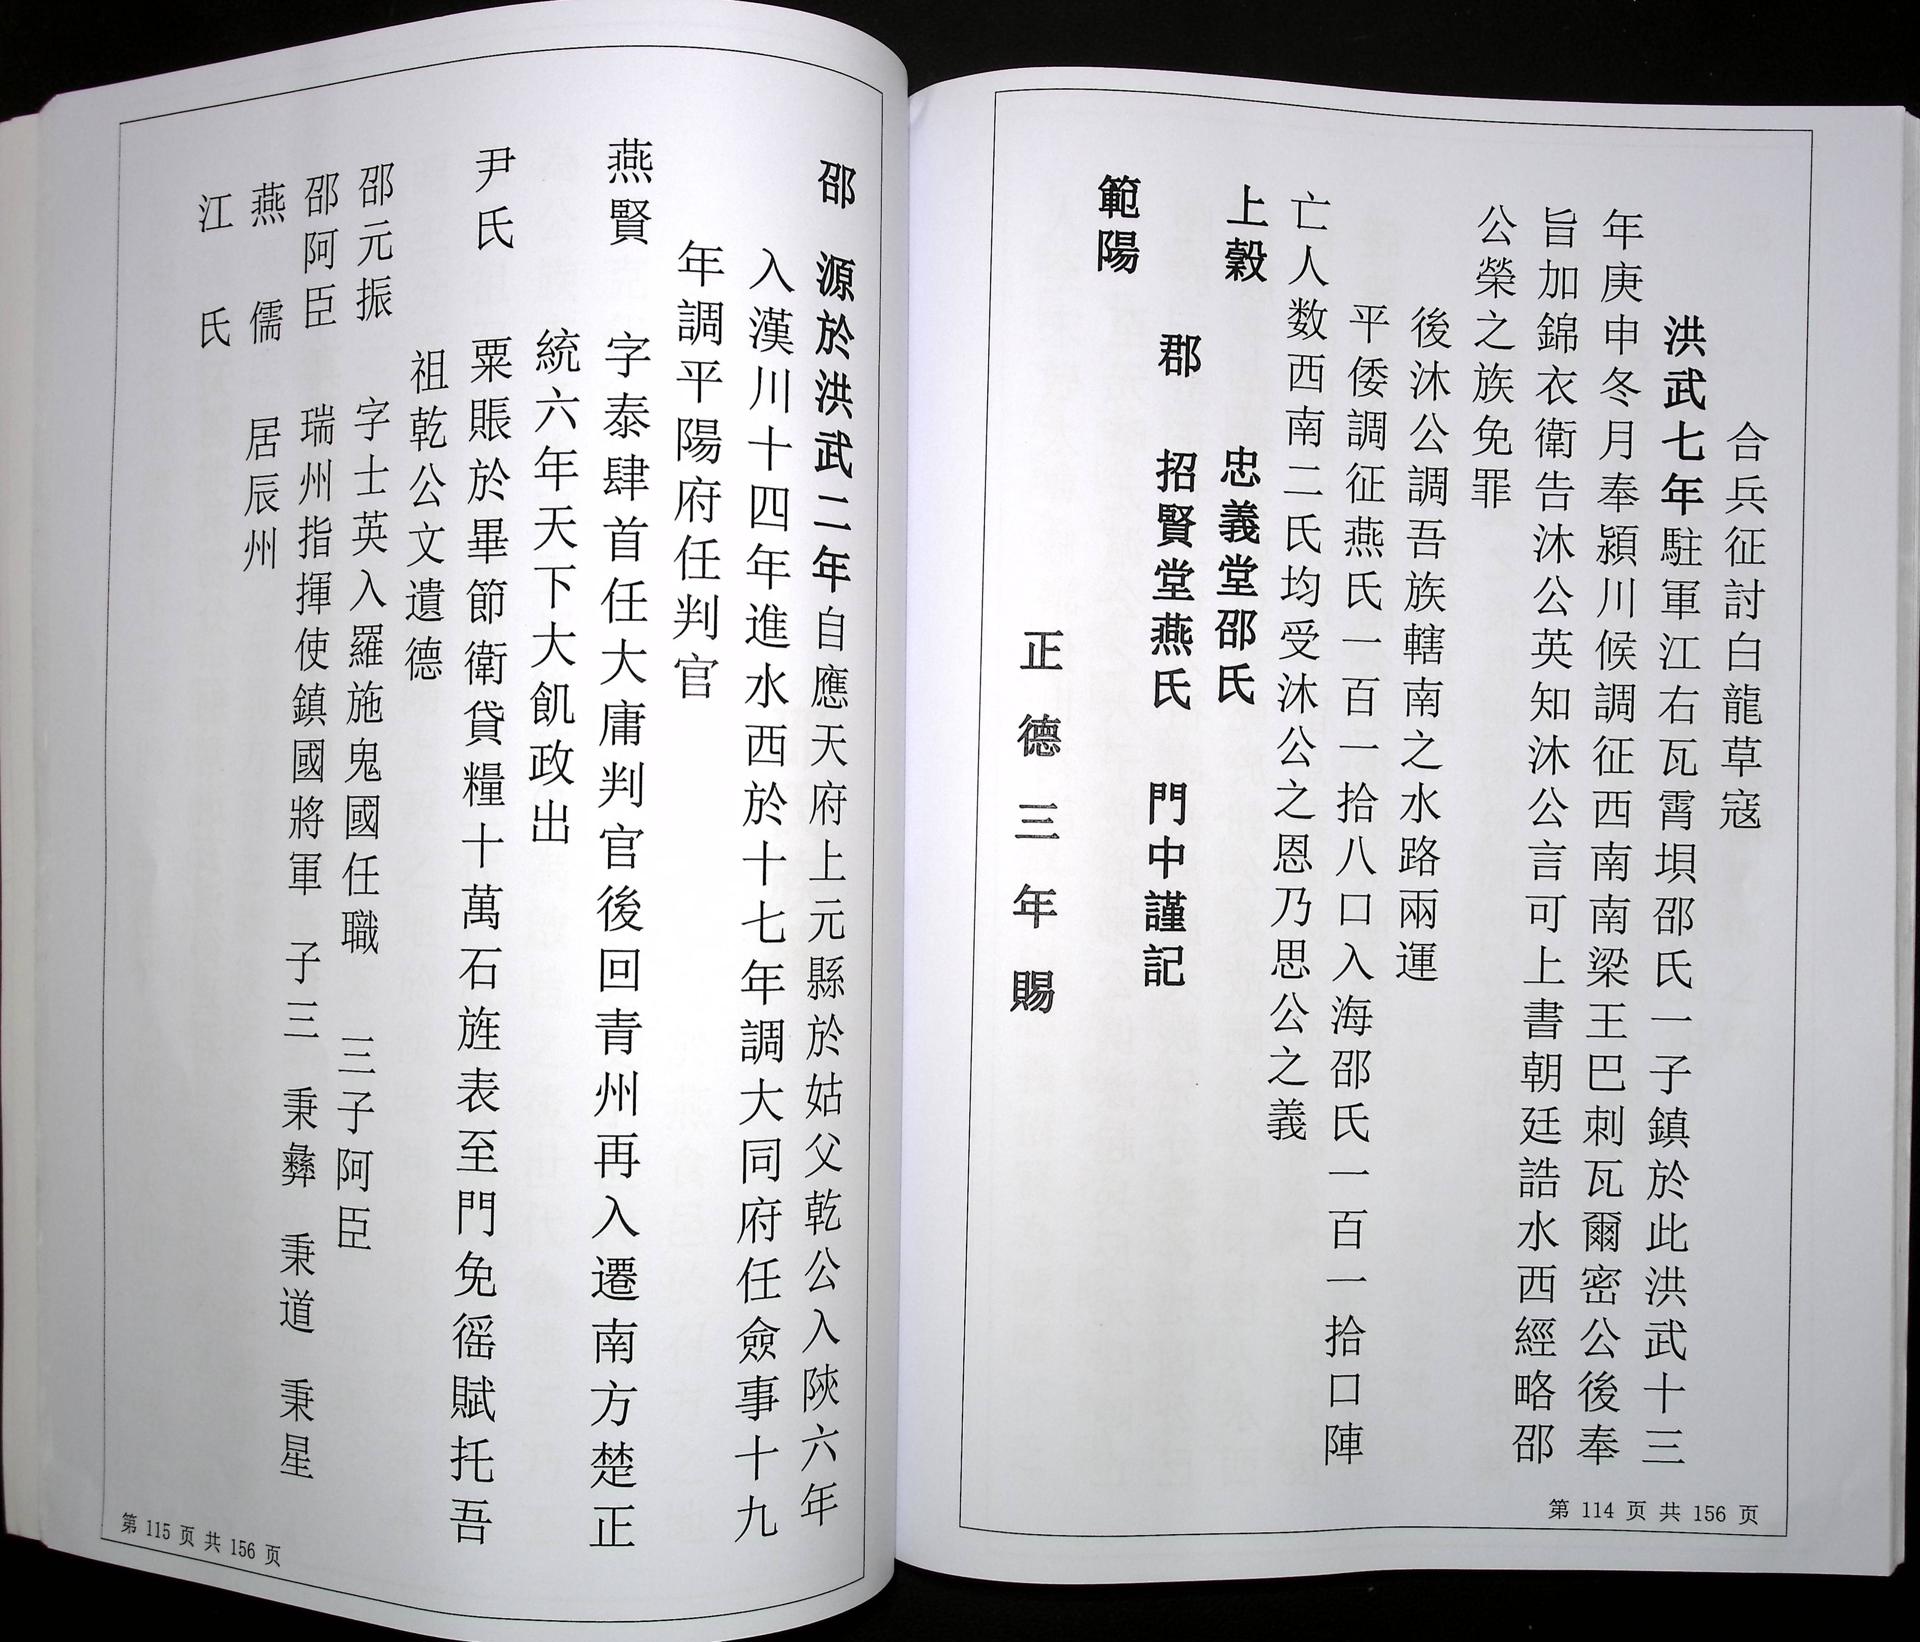 合兵征討白龍草寇
洪武七年駐軍江右瓦霄垻邵氏一子鎮於此洪武十三
年庚申冬月奉潁川候調征西南南梁王巴刺瓦爾密公後奉
旨加錦衣衛告沐公英知沐公言可上書朝廷誥水西經略邵
公榮之族免罪
後沐公調吾族轄南之水路兩運
平倭調征燕氏一百一拾八口入海邵氏一百一拾口陣
亡人数西南二氏均受沐公之恩乃思公之義
上穀 忠義堂邵氏
郡 招賢堂燕氏 門中謹記
範陽
正德三年賜
第 114 页 共 156 页
邵 源於洪武二年自應天府上元縣於姑父乾公入陝六年
入漢川十四年進水西於十七年調大同府任僉事十九
年調平陽府任判官
燕賢 字泰肆首任大庸判官後回青州再入遷南方楚正
統六年天下大飢政出
尹氏 粟賬於畢節衛貸糧十萬石旌表至門免徭賦托吾
祖乾公文遺德
邵元振 字士英入羅施鬼國任職 三子阿臣
邵阿臣 瑞州指揮使鎮國將軍 子三 秉彝 秉道 秉星
燕 儒 居辰州
江 氏
第 115 页 共 156 页